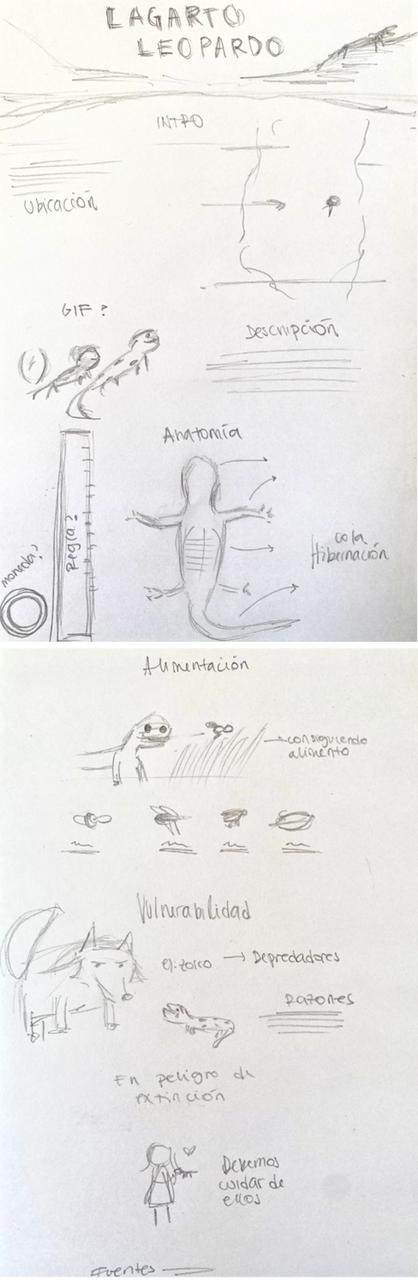 LAGARTO
LEOPARDO
INTRO
Ubicación
GIF?
Descripción
Anatomía
Regla?
moneda?
cola
Hibernación
Alimentación
consiguiendo
alimento
Vulnerabilidad
el zorro → Depredadores
Razones
En peligro de
extinción
Debemos
cuidar de
ellos
Fuentes